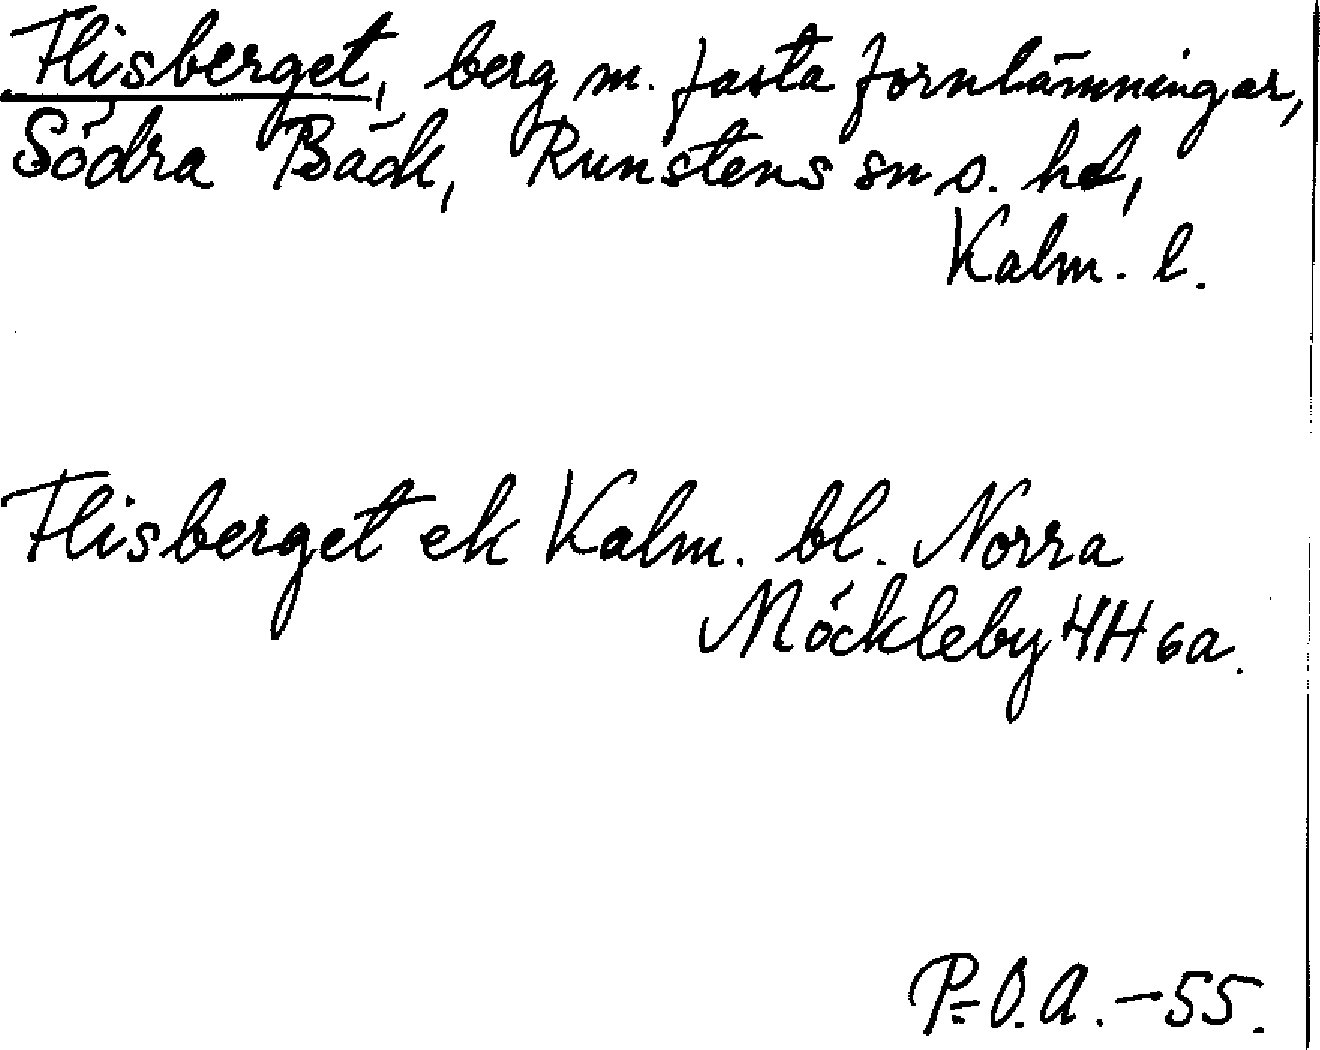 Flisberget, berg m. fasta fornlämningar,
Södra Bäck, Runstens sn o. hd,
Kalm. l.
Flisberget ek Kalm. bl. Norra
Möckleby HH 6a.
P-O.A. -55.